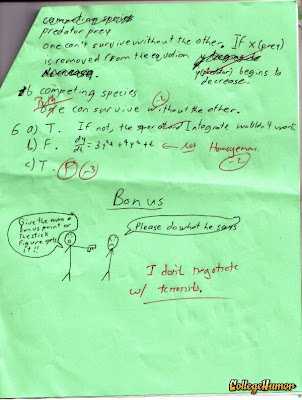 competing species
predator prey
one can't survive without the other. If x (prey)
is removed from the equation y begins to
decrease. y (predator) begins to
decrease.
b competing species
Both
One can survive without the other.
6 a) T. If not, the Integrate wouldn't work
b) F. dy/dt = 3y²+4y²+t ← not Homogenous
-2
c) T. F -3
Bonus
Give the man a
bonus point or
the stick
figure gets
it!!
Please do what he says
I don't negotiate
w/ terrorists.
CollegeHumor